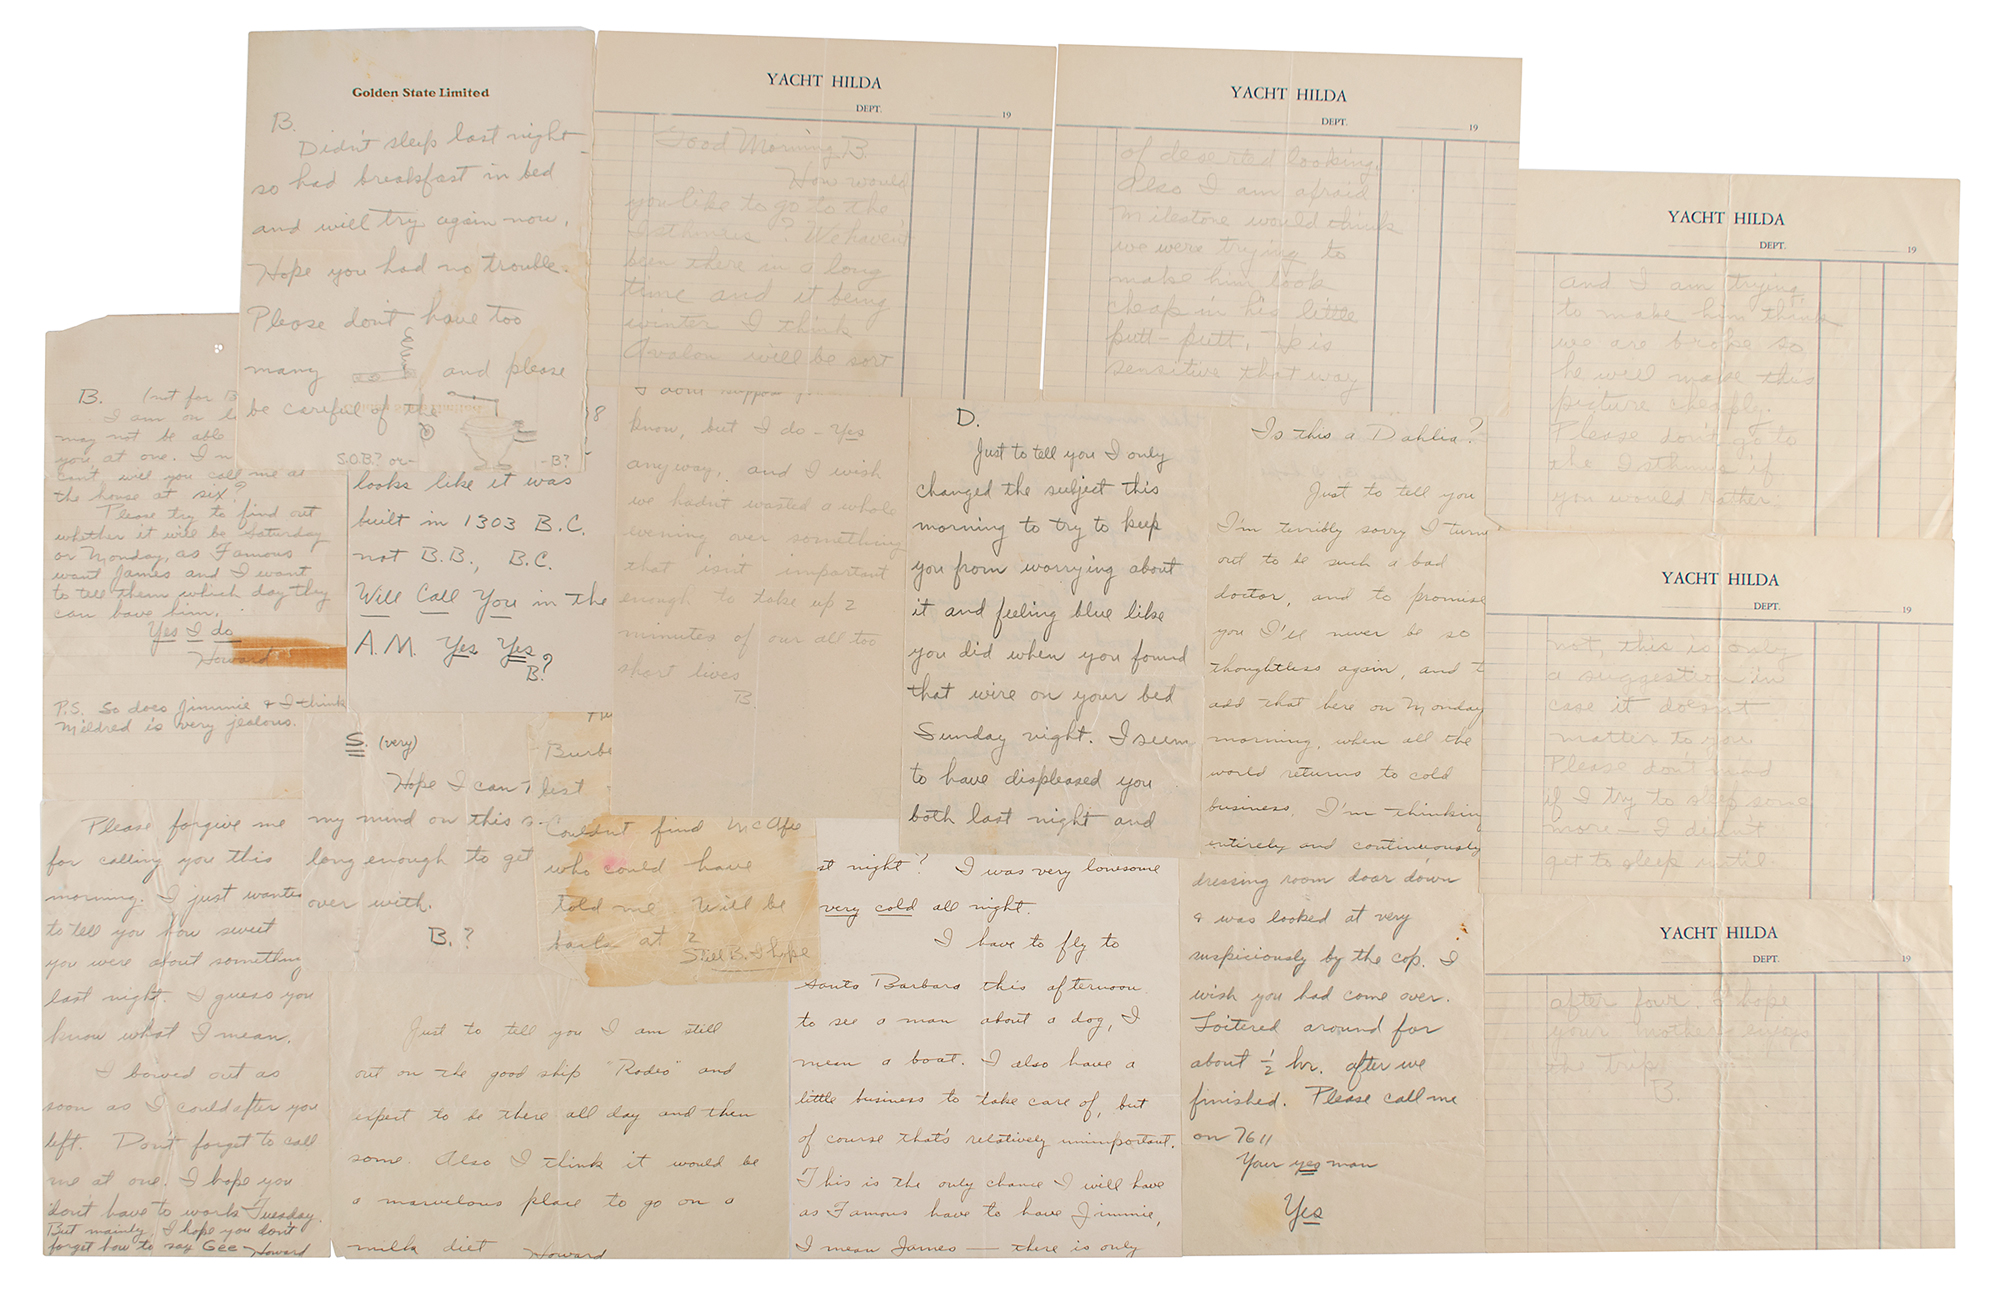 Golden State Limited
B.
Didn't sleep last night -
so had breakfast in bed
and will try again now.
Hope you had no trouble.
Please don't have too
many and please
be careful of the
S.O.B.? or- -B?
YACHT HILDA
DEPT. 19
Good Morning B.
How would
you like to go to the
Isthmus? We haven't
been there in a long
time and it being
winter I think
Avalon will be sort
YACHT HILDA
DEPT. 19
of deserted looking.
Also I am afraid
Milestone would think
we were trying to
make him look
cheap in his little
putt-putt. He is
sensitive that way
YACHT HILDA
DEPT. 19
and I am trying
to make him think
we are broke so
he will make this
picture cheaply.
Please don't go to
the Isthmus if
you would rather
YACHT HILDA
DEPT. 19
not, this is only
a suggestion in
case it doesn't
matter to you
Please don't mind
if I try to sleep some
more — I didn't
get to sleep until
YACHT HILDA
DEPT. 19
after four. I hope
your mother enjoys
the trip.
B.
B. (not for B
I am on
may not be able
you at one. I
can't will you call me at
the house at six?
Please try to find out
whether it will be Saturday
or Monday, as Famous
want James and I want
to tell them which day they
can have him.
Yes I do
Howard
P.S. So does Jimmie & I think
Mildred is very jealous.
8
looks like it was
built in 1303 B.C.
not B.B., B.C.
Will Call You in the
A.M. Yes Yes
B?
I don't suppose
know, but I do - Yes
anyway, and I wish
we hadn't wasted a whole
evening over something
that isn't important
enough to take up 2
minutes of our all too
short lives
B
D.
Just to tell you I only
changed the subject this
morning to try to keep
you from worrying about
it and feeling blue like
you did when you found
that wire on your bed
Sunday night. I seem
to have displeased you
both last night and
Is this a Dahlia?
Just to tell you
I'm terribly sorry I turn
out to be such a bad
doctor, and to promise
you I'll never be so
thoughtless again, and t
add that here on Monday
morning, when all the
world returns to cold
business, I'm thinking
entirely and continuously
Please forgive me
for calling you this
morning. I just wanted
to tell you how sweet
you were about something
last night. I guess you
know what I mean.
I bowed out as
soon as I could after you
left. Don't forget to call
me at one. I hope you
don't have to work Tuesday.
But mainly, I hope you don't
forget how to say Gee Howard
S. (very)
Hope I can't
my mind on this s-
long enough to get
over with.
B.?
Burb
last
Couldn't find McAfe
who could have
told me. Will be
back at 2
Still B. I hope
Just to tell you I am still
out on the good ship "Rodeo" and
expect to be there all day and then
some. Also I think it would be
a marvelous place to go on a
milk diet Howard
st night? I was very lonesome
very cold all night.
I have to fly to
Santa Barbara this afternoon
to see a man about a dog, I
mean a boat. I also have a
little business to take care of, but
of course that's relatively unimportant.
This is the only chance I will have
as Famous have to have Jimmie,
I mean James — there is only
dressing room door down
& was looked at very
suspiciously by the cop. I
wish you had come over.
Loitered around for
about ½ hr. after we
finished. Please call me
on 7611
Your yes man
Yes